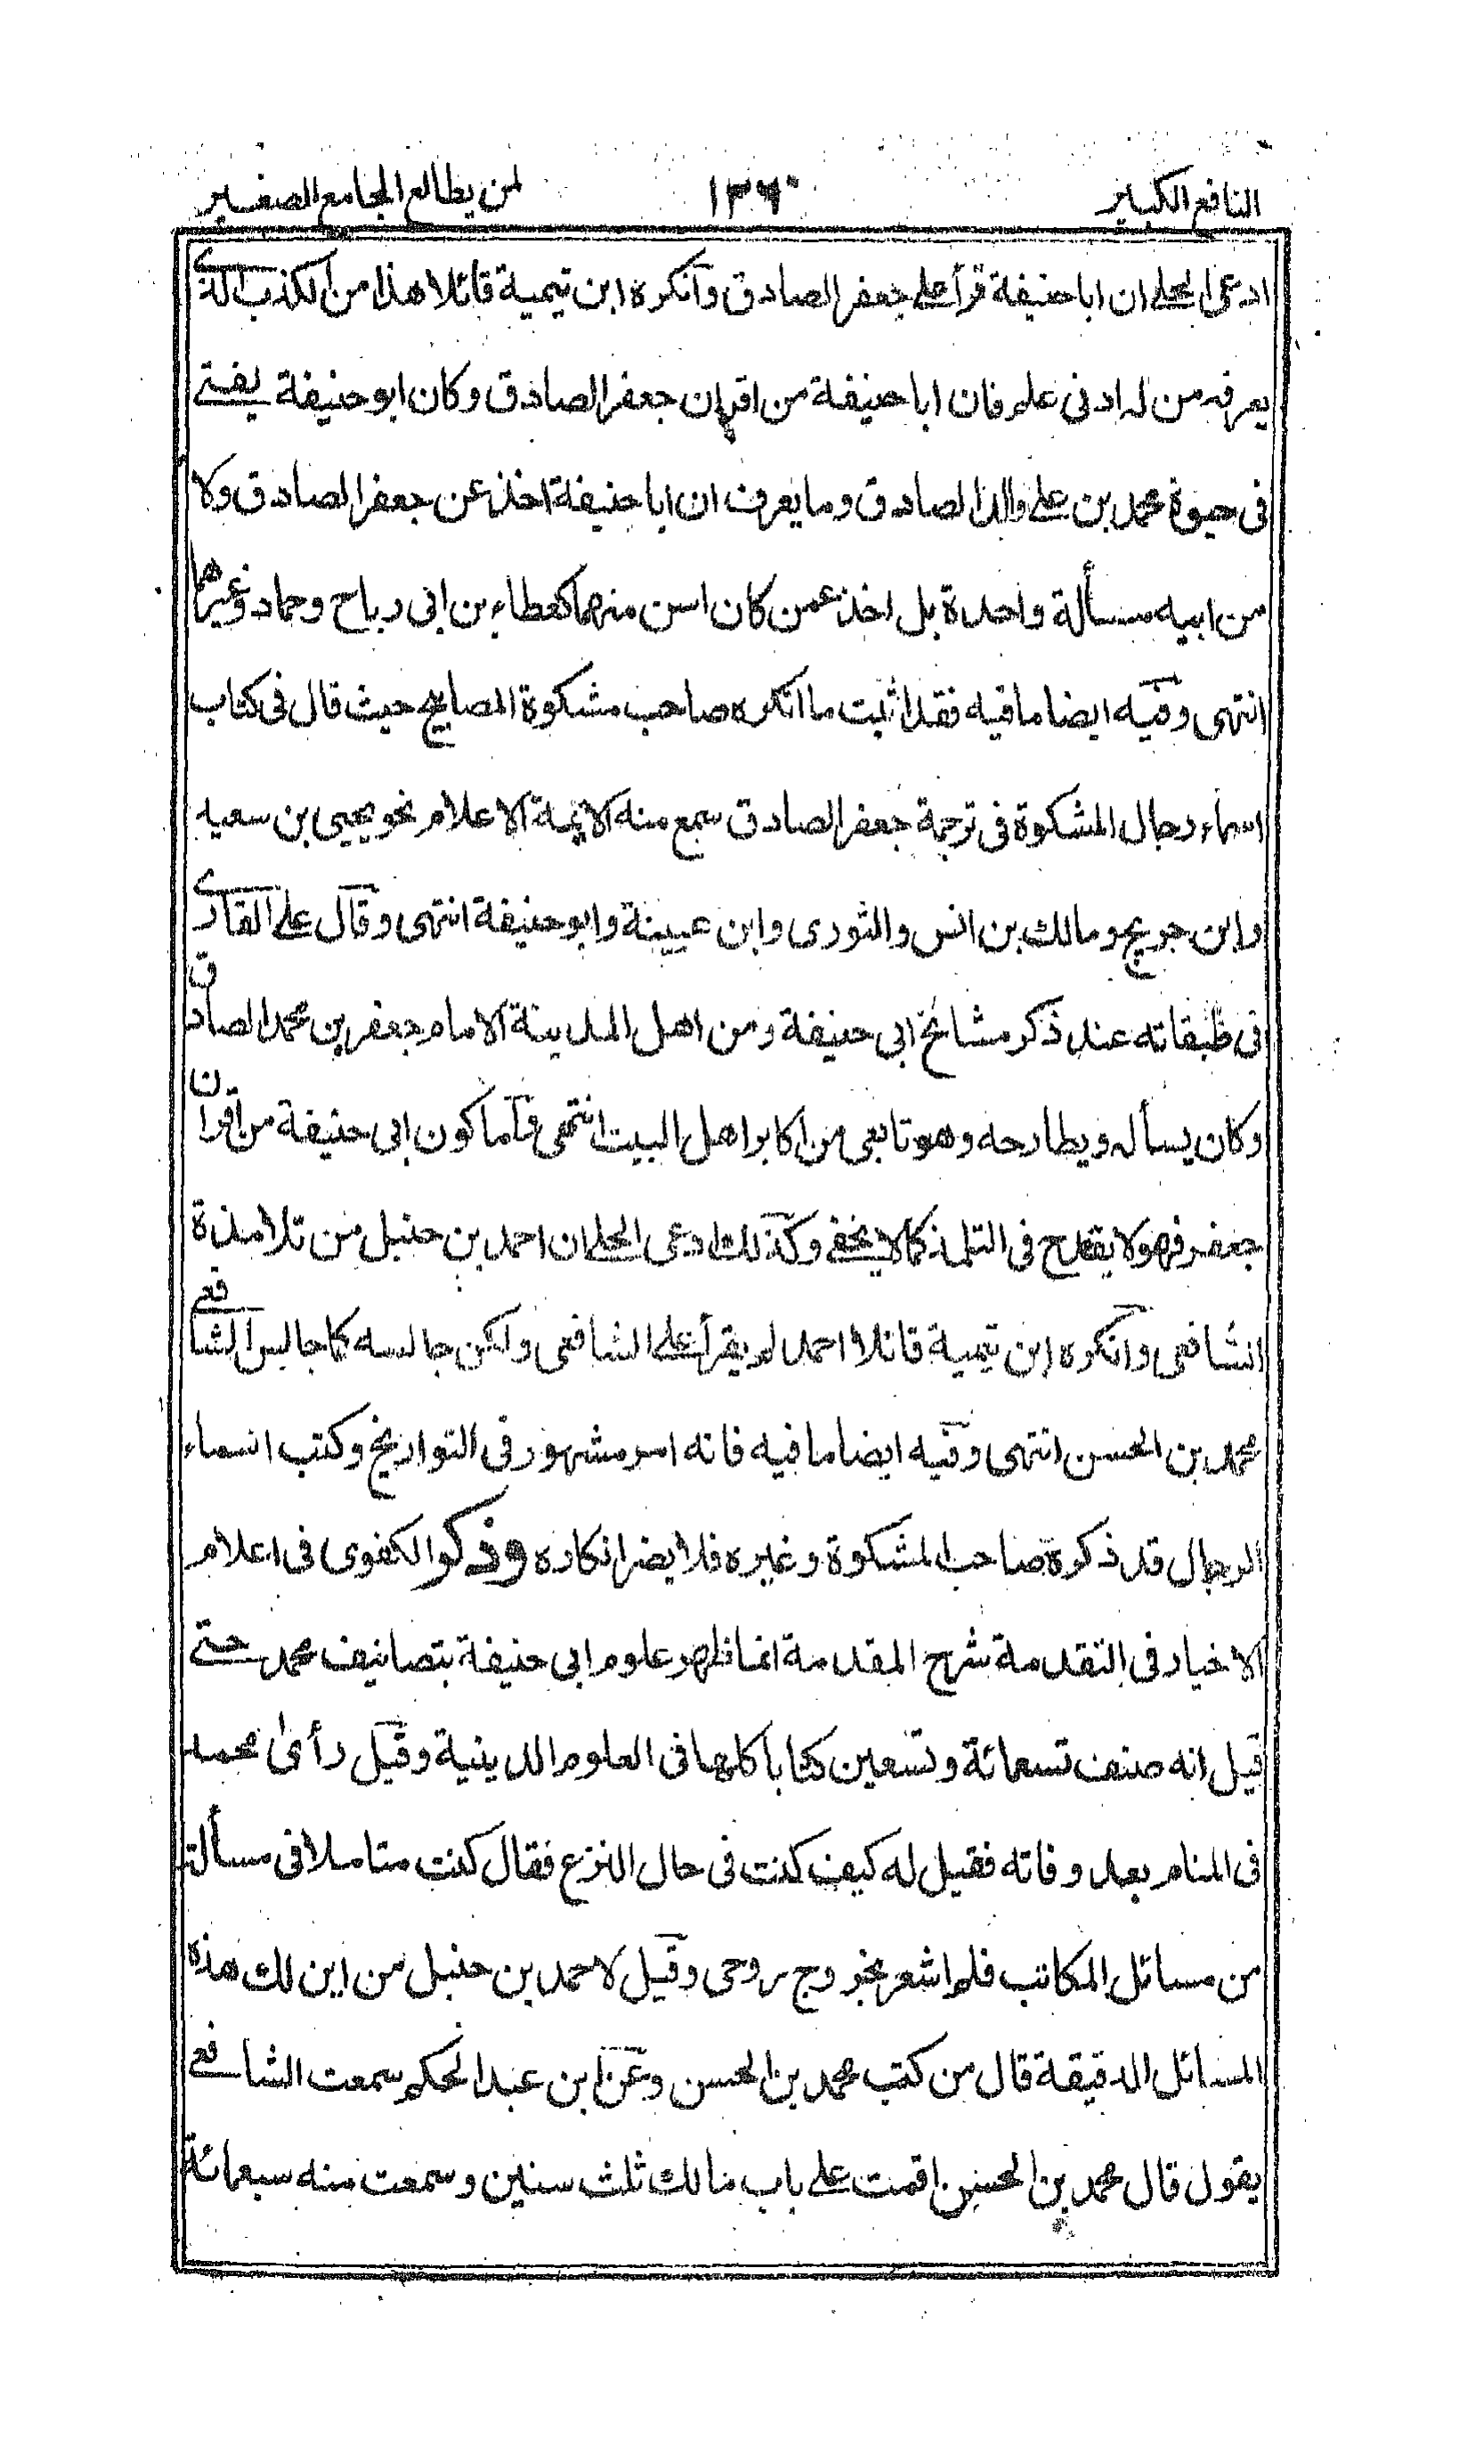 النافع الكبير ١٣٦ لمن يطالع الجامع الصغير
ادعى الحلى ان ابا حنيفة قرأ على جعفر الصادق وانكره ابن تيمية قائلا هذا من الكذب الذى
يعرفه من له ادنى علم فان ابا حنيفة من اقران جعفر الصادق وكان ابو حنيفة يفتى
فى حيوة محمد بن على والد الصادق وما يعرف ان ابا حنيفة اخذ عن جعفر الصادق ولا
من ابيه مسألة واحدة بل اخذ عمن كان اسن منهما كعطاء بن ابى رباح وحماد وغيرهما
انتهى وفيه ايضا ما فيه فقد اثبت ما انكره صاحب مشكوة المصابيح حيث قال فى كتاب
اسماء رجال المشكوة فى ترجمة جعفر الصادق سمع منه الائمة الاعلام نحو يحيى بن سعيد
وابن جريج ومالك بن انس والثورى وابن عيينة وابو حنيفة انتهى وقال على القارى
فى طبقاته عند ذكر مشائخ ابى حنيفة ومن اهل المدينة الامام جعفر بن محمد الصادق
وكان يسأله ويطارحه وهو تابعى من اكابر اهل البيت انتهى فاما كون ابى حنيفة من اقران
جعفر فهو لا يقدح فى التلمذ كما لا يخفى وكذلك ادعى الحلى ان احمد بن حنبل من تلامذة
الشافعى وانكره ابن تيمية قائلا احمد لم يقرأ على الشافعى ولكن جالسه كما جالس الشافعى
محمد بن الحسن انتهى وفيه ايضا ما فيه فانه امر مشهور فى التواريخ وكتب اسماء
الرجال قد ذكره صاحب المشكوة وغيره فلا يضر انكاره وذكر الكفوى فى اعلام
الاخيار فى التقدمة شرح المقدمة انما ظهر علوم ابى حنيفة بتصانيف محمد حتى
قيل انه صنف تسعمائة وتسعين كتابا كلها فى العلوم الدينية وقيل رأى محمد
فى المنام بعد وفاته فقيل له كيف كنت فى حال النزع فقال كنت متاملا فى مسألة
من مسائل المكاتب فلم اشعر بخروج روحى وقيل لاحمد بن حنبل من اين لك هذه
المسائل الدقيقة قال من كتب محمد بن الحسن وعن ابن عبد الحكم سمعت الشافعى
يقول قال محمد بن الحسن اقمت على باب مالك ثلث سنين وسمعت منه سبعمائة